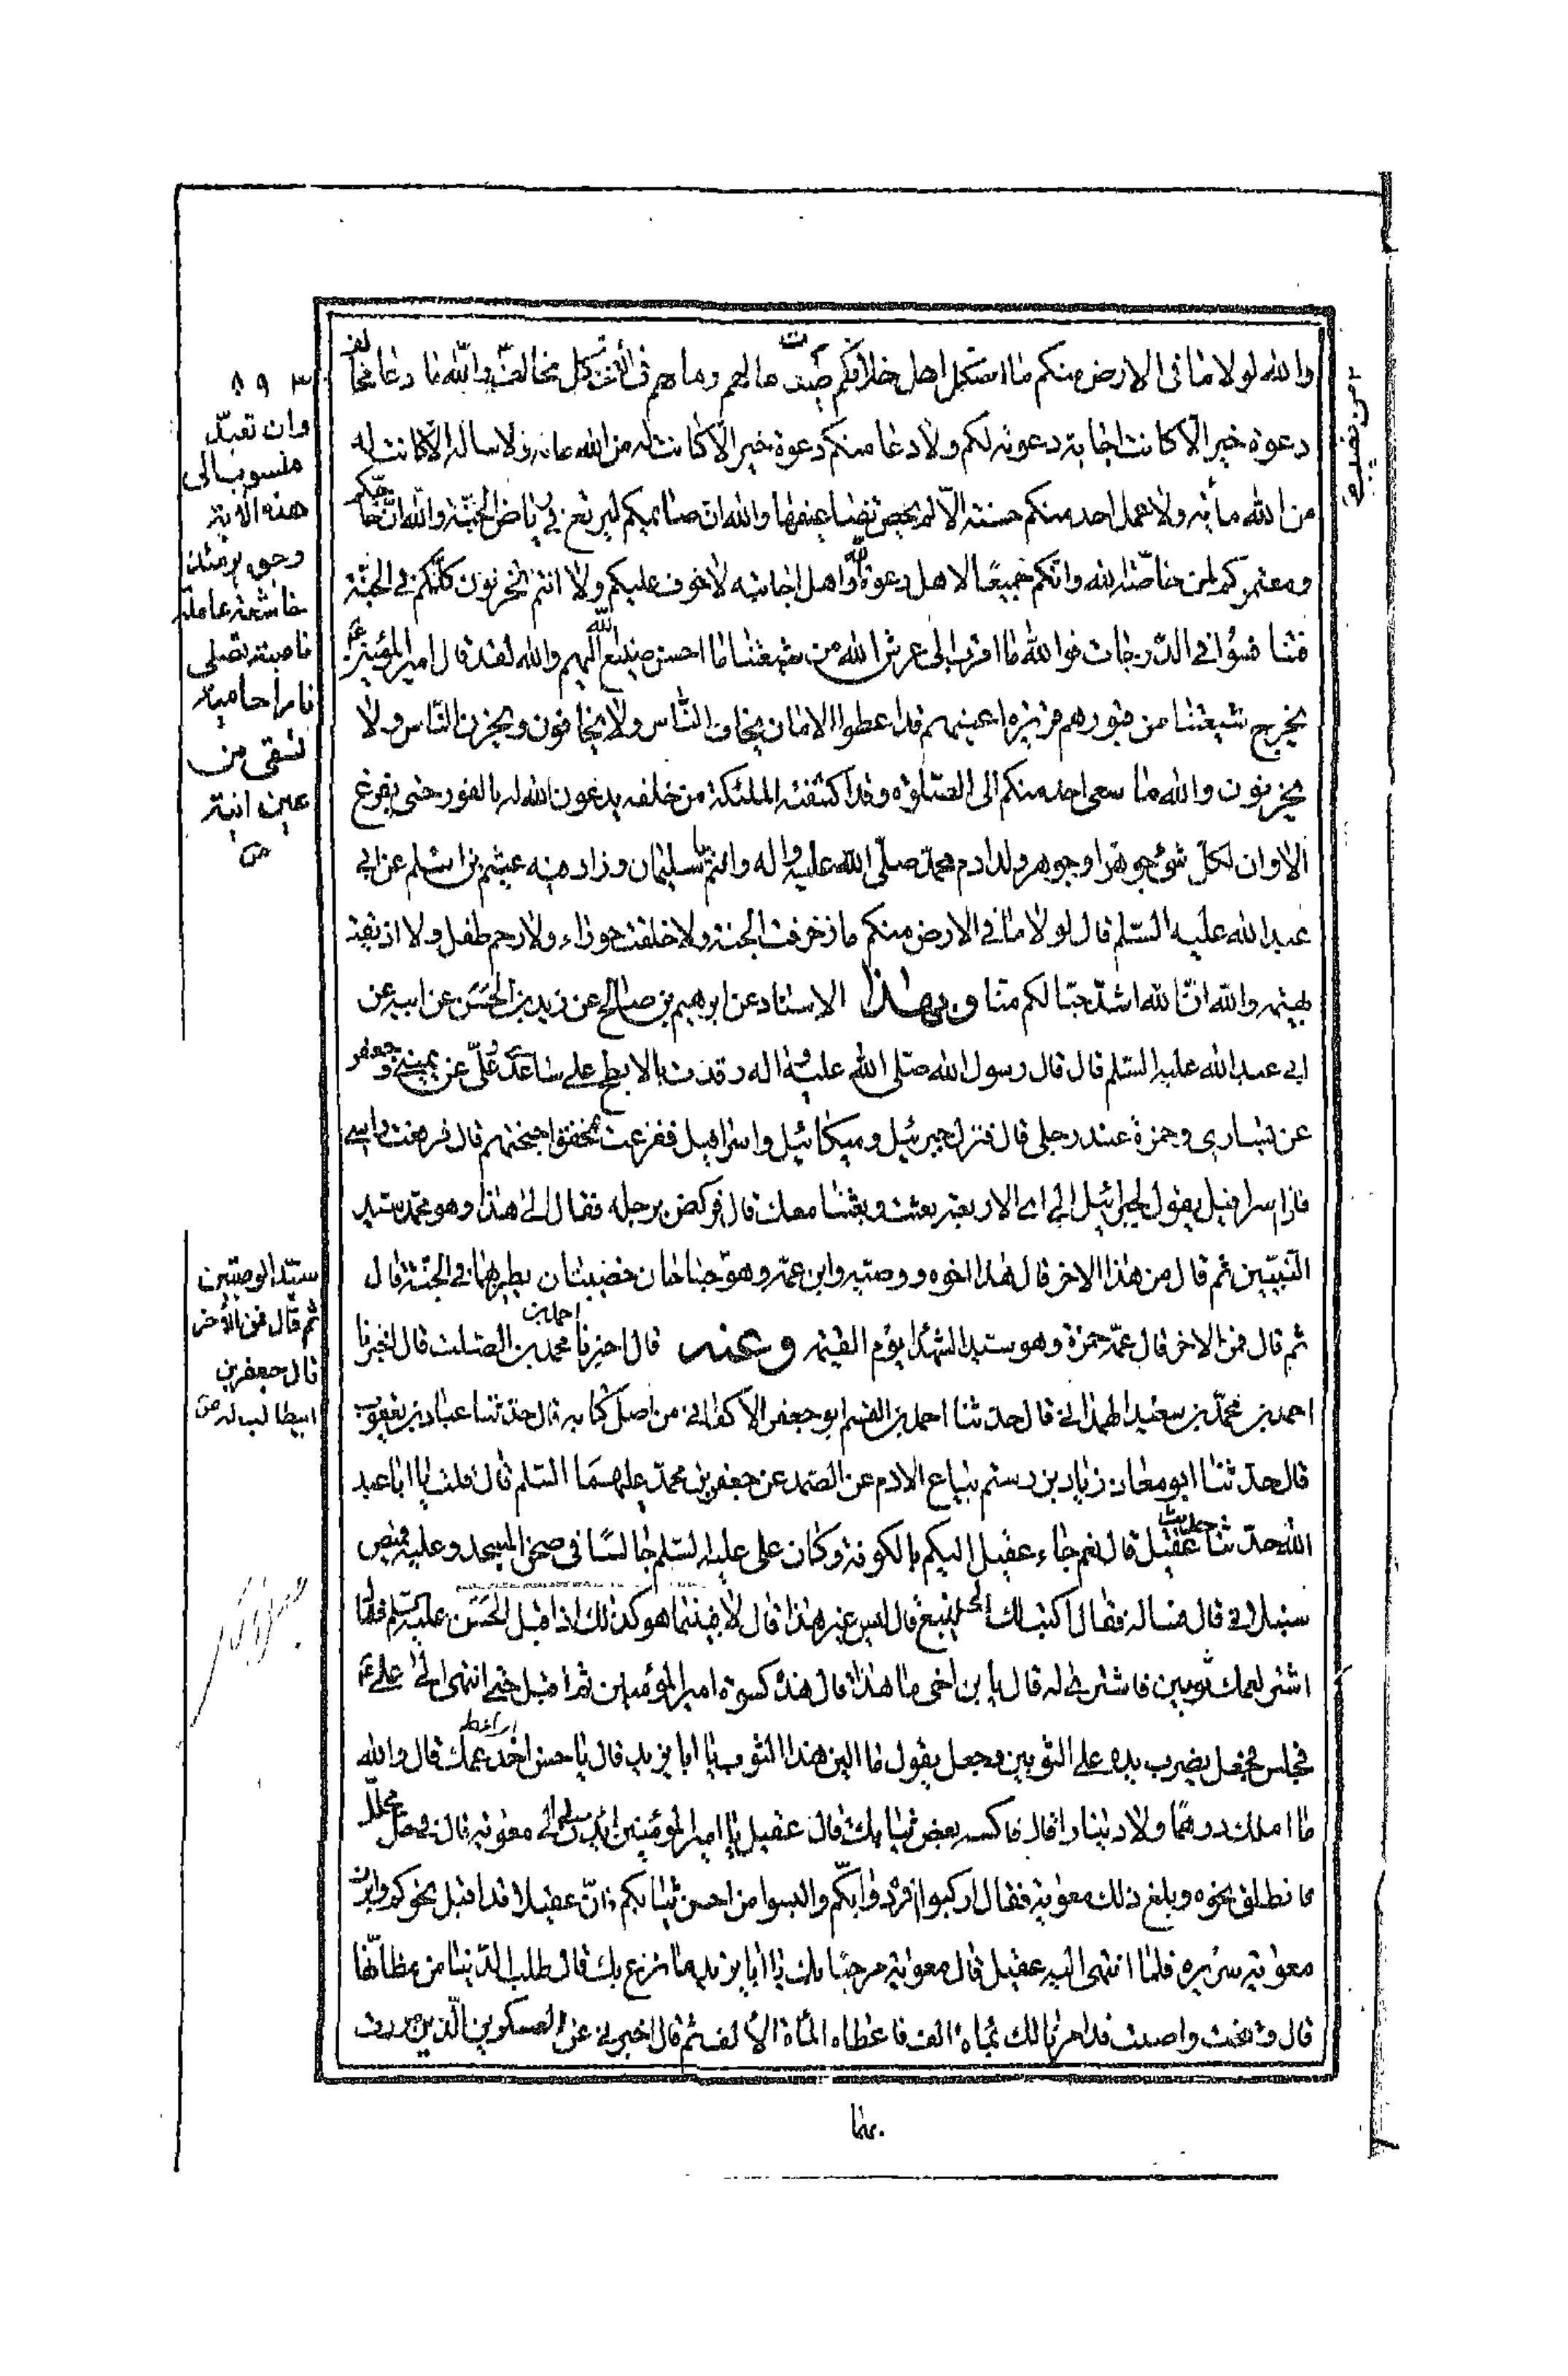 والله لولا ما فى الارض منكم ما استكمل اهل خلافكم طيبات مالهم وما لهم فى الآخرة كل مخالف والله ما دعا مخالف
دعوة خير الا كانت اجابة دعوته لكم ولا دعا منكم دعوة خير الا كانت له من الله مائة ولا ساله الا كانت له
من الله مائة ولا عمل احد منكم حسنة الا لم يحص تضاعيفها والله ان صائمكم ليرتع فى رياض الجنة والله ان حاجكم
ومعتمركم لمن خاصة الله وانكم جميعا لاهل دعوة الله واهل اجابته لا خوف عليكم ولا انتم تحزنون كلكم فى الجنة
فتنافسوا فى الدرجات فوالله ما اقرب الى عرش الله من شيعتنا ما احسن صنيع الله اليهم والله لقد قال امير المؤمنين
يخرج شيعتنا من قبورهم قريرة اعينهم قد اعطوا الامان يخاف الناس ولا يخافون ويحزن الناس ولا
يحزنون والله ما سعى احد منكم الى الصلوة وقد اكتنفته الملئكة من خلفه يدعون الله له بالفوز حتى يفرغ
الا وان لكل شئ جوهرا وجوهر ولد ادم محمد صلى الله عليه واله وانتم يا سليمان وزاد فيه عيثم بن اسلم عن ابى
عبد الله عليه السلم قال لولا ما فى الارض منكم ما زخرفت الجنة ولا خلقت حوراء ولا رحم طفل ولا اذيقت
بهيمة والله ان الله اشد حبا لكم منا وبهذا الاسناد عن ابرهيم بن صالح عن زيد بن الحسن عن ابيه عن
ابى عبد الله عليه السلم قال قال رسول الله صلى الله عليه واله رقدت بالابطح على ساعدى وعلى عن يمينى وجعفر
عن يسارى وحمزة عند رجلى قال فنزل جبرئيل وميكائيل واسرافيل ففزعت لخفق اجنحتهم قال فرفعت راسى
فاذا اسرافيل يقول لجبرائيل الى اى الاربعة بعثت وبعثنا معك قال فركض برجله فقال الى هذا وهو محمد سيد
النبيين ثم قال من هذا الاخر قال هذا اخوه ووصيه وابن عمه وهو جناحان خضيبان يطير بهما فى الجنة قال
ثم قال فمن الاخر قال عمه حمزة وهو سيد الشهدا يوم القيمة وعنه قال اخبرنا احمد بن محمد بن الصلت قال اخبرنا
احمد بن محمد بن سعيد الهمدانى قال حدثنا احمد بن القسم ابو جعفر الاكفانى من اصل كتابه قال حدثنا عباد بن يعقوب
قال حدثنا ابو معاذ زياد بن رستم بياع الادم عن الصمد عن جعفر بن محمد عليهما السلم قال قلت يا ابا عبد
الله حدثنا حديث عقيل قال نعم جاء عقيل اليكم بالكوفة وكان على عليه السلم جالسا فى صحن المسجد وعليه قميص
سنبلانى قال فساله فقال اكتب لك الى ينبع قال ليس غير هذا قال لا فبينما هو كذلك اذ اقبل الحسن عليه السلم فقال
اشتر لعمك ثوبين فاشترى له قال يا بن اخى ما هذا قال هذه كسوة امير المؤمنين ثم اقبل حتى انتهى الى على
فجلس فجعل يضرب يده على الثوبين وجعل يقول ما الين هذا الثوب يا ابا يزيد قال يا حسن اخد عمك قال والله
ما املك درهما ولا دينارا قال فاكسه بعض ثيابك قال عقيل يا امير المؤمنين ائذن لى الى معوية قال فى حل محلل
فانطلق نحوه وبلغ ذلك معوية فقال اركبوا افره دوابكم والبسوا من احسن ثيابكم فان عقيلا قد اقبل نحوكم وابرز
معوية سريره فلما انتهى اليه عقيل قال معوية مرحبا بك يا ابا يزيد ما نزع بك قال طلب الدنيا من مظانها
قال وفقت واصبت قد امرنا لك بمائة الف فاعطاه المائة الالف ثم قال اخبرنى عن العسكرين الذين مررت
بهما
٨٩٣
وان تعبد
منسوب الى
هذه الاية
وجوه يومئذ
خاشعة عاملة
ناصبة تصلى
نارا حامية
تسقى من
عين انية
ص
سيد الوصيين
ثم قال فمن الاخر
قال جعفر بن
ابيطالب له ص